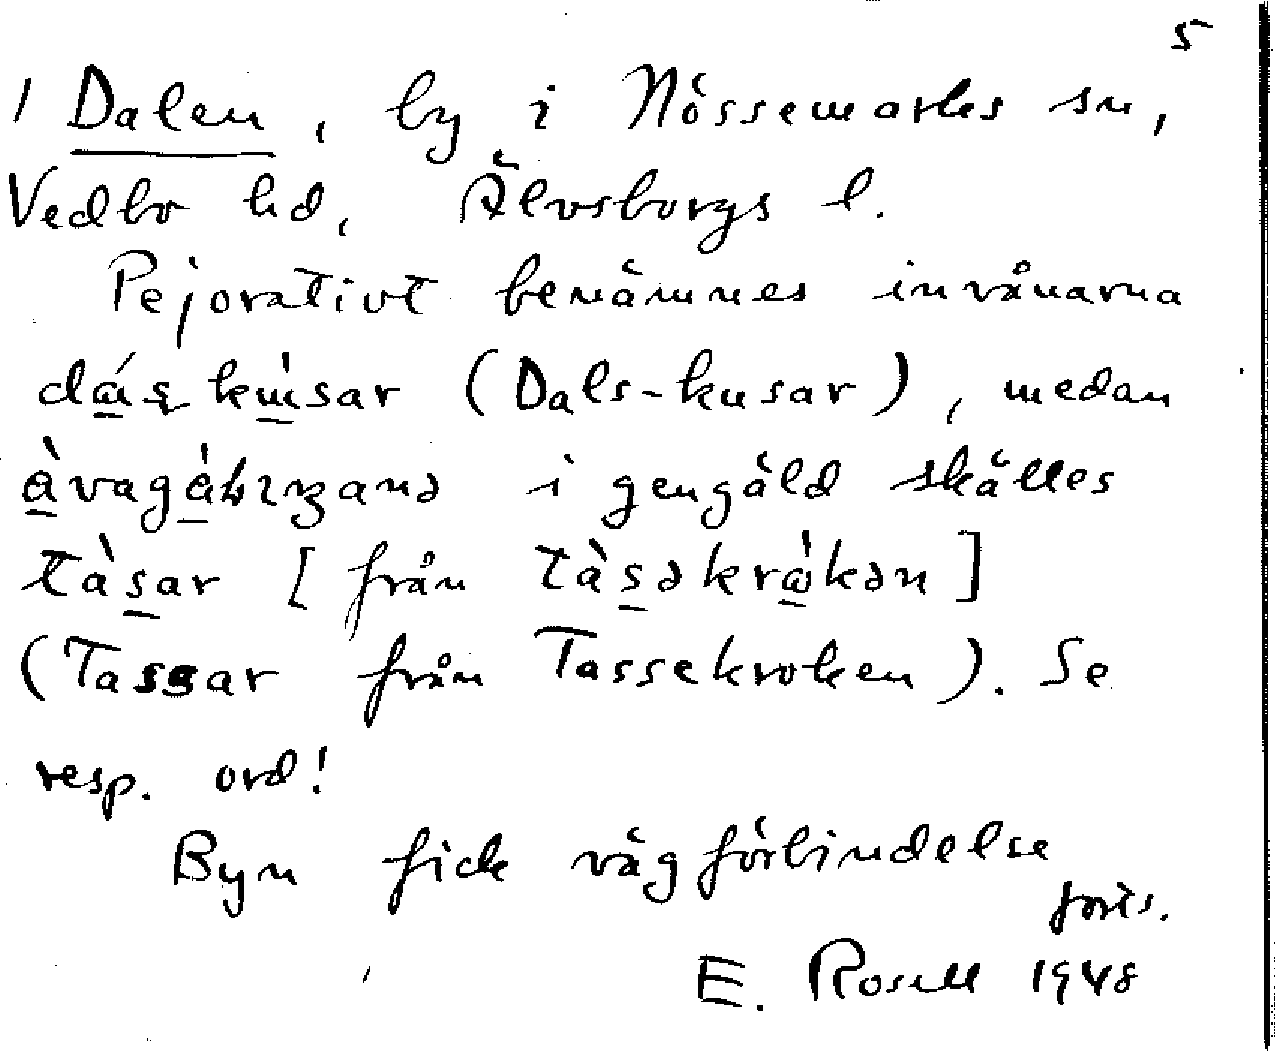 5
1 Dalen, by i Nössemarks sn,
Vedbo hd, Älvsborgs l.
Pejorativt benämnes invånarna
(Dals-kusar), medan
i gengäld skälles
tàsar [från tàsəkrɷ̀kən]
(Tassar från Tassekroken). Se
resp. ord!
Byn fick vägförbindelse
forts.
E. Rosell 1948